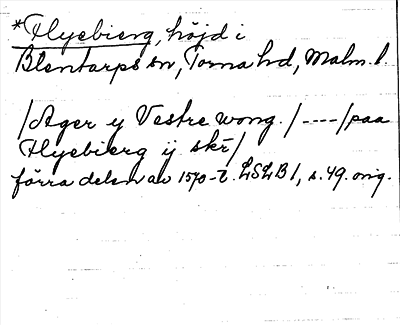 *Hyebierg, höjd i
Blentarps sn, Torna hd, Malm. l.
/Ager y Vestre wong. / ---- /paa
Hyebierg ij skr/
förra delen av 1570-t. LSLB 1, s. 49. orig.